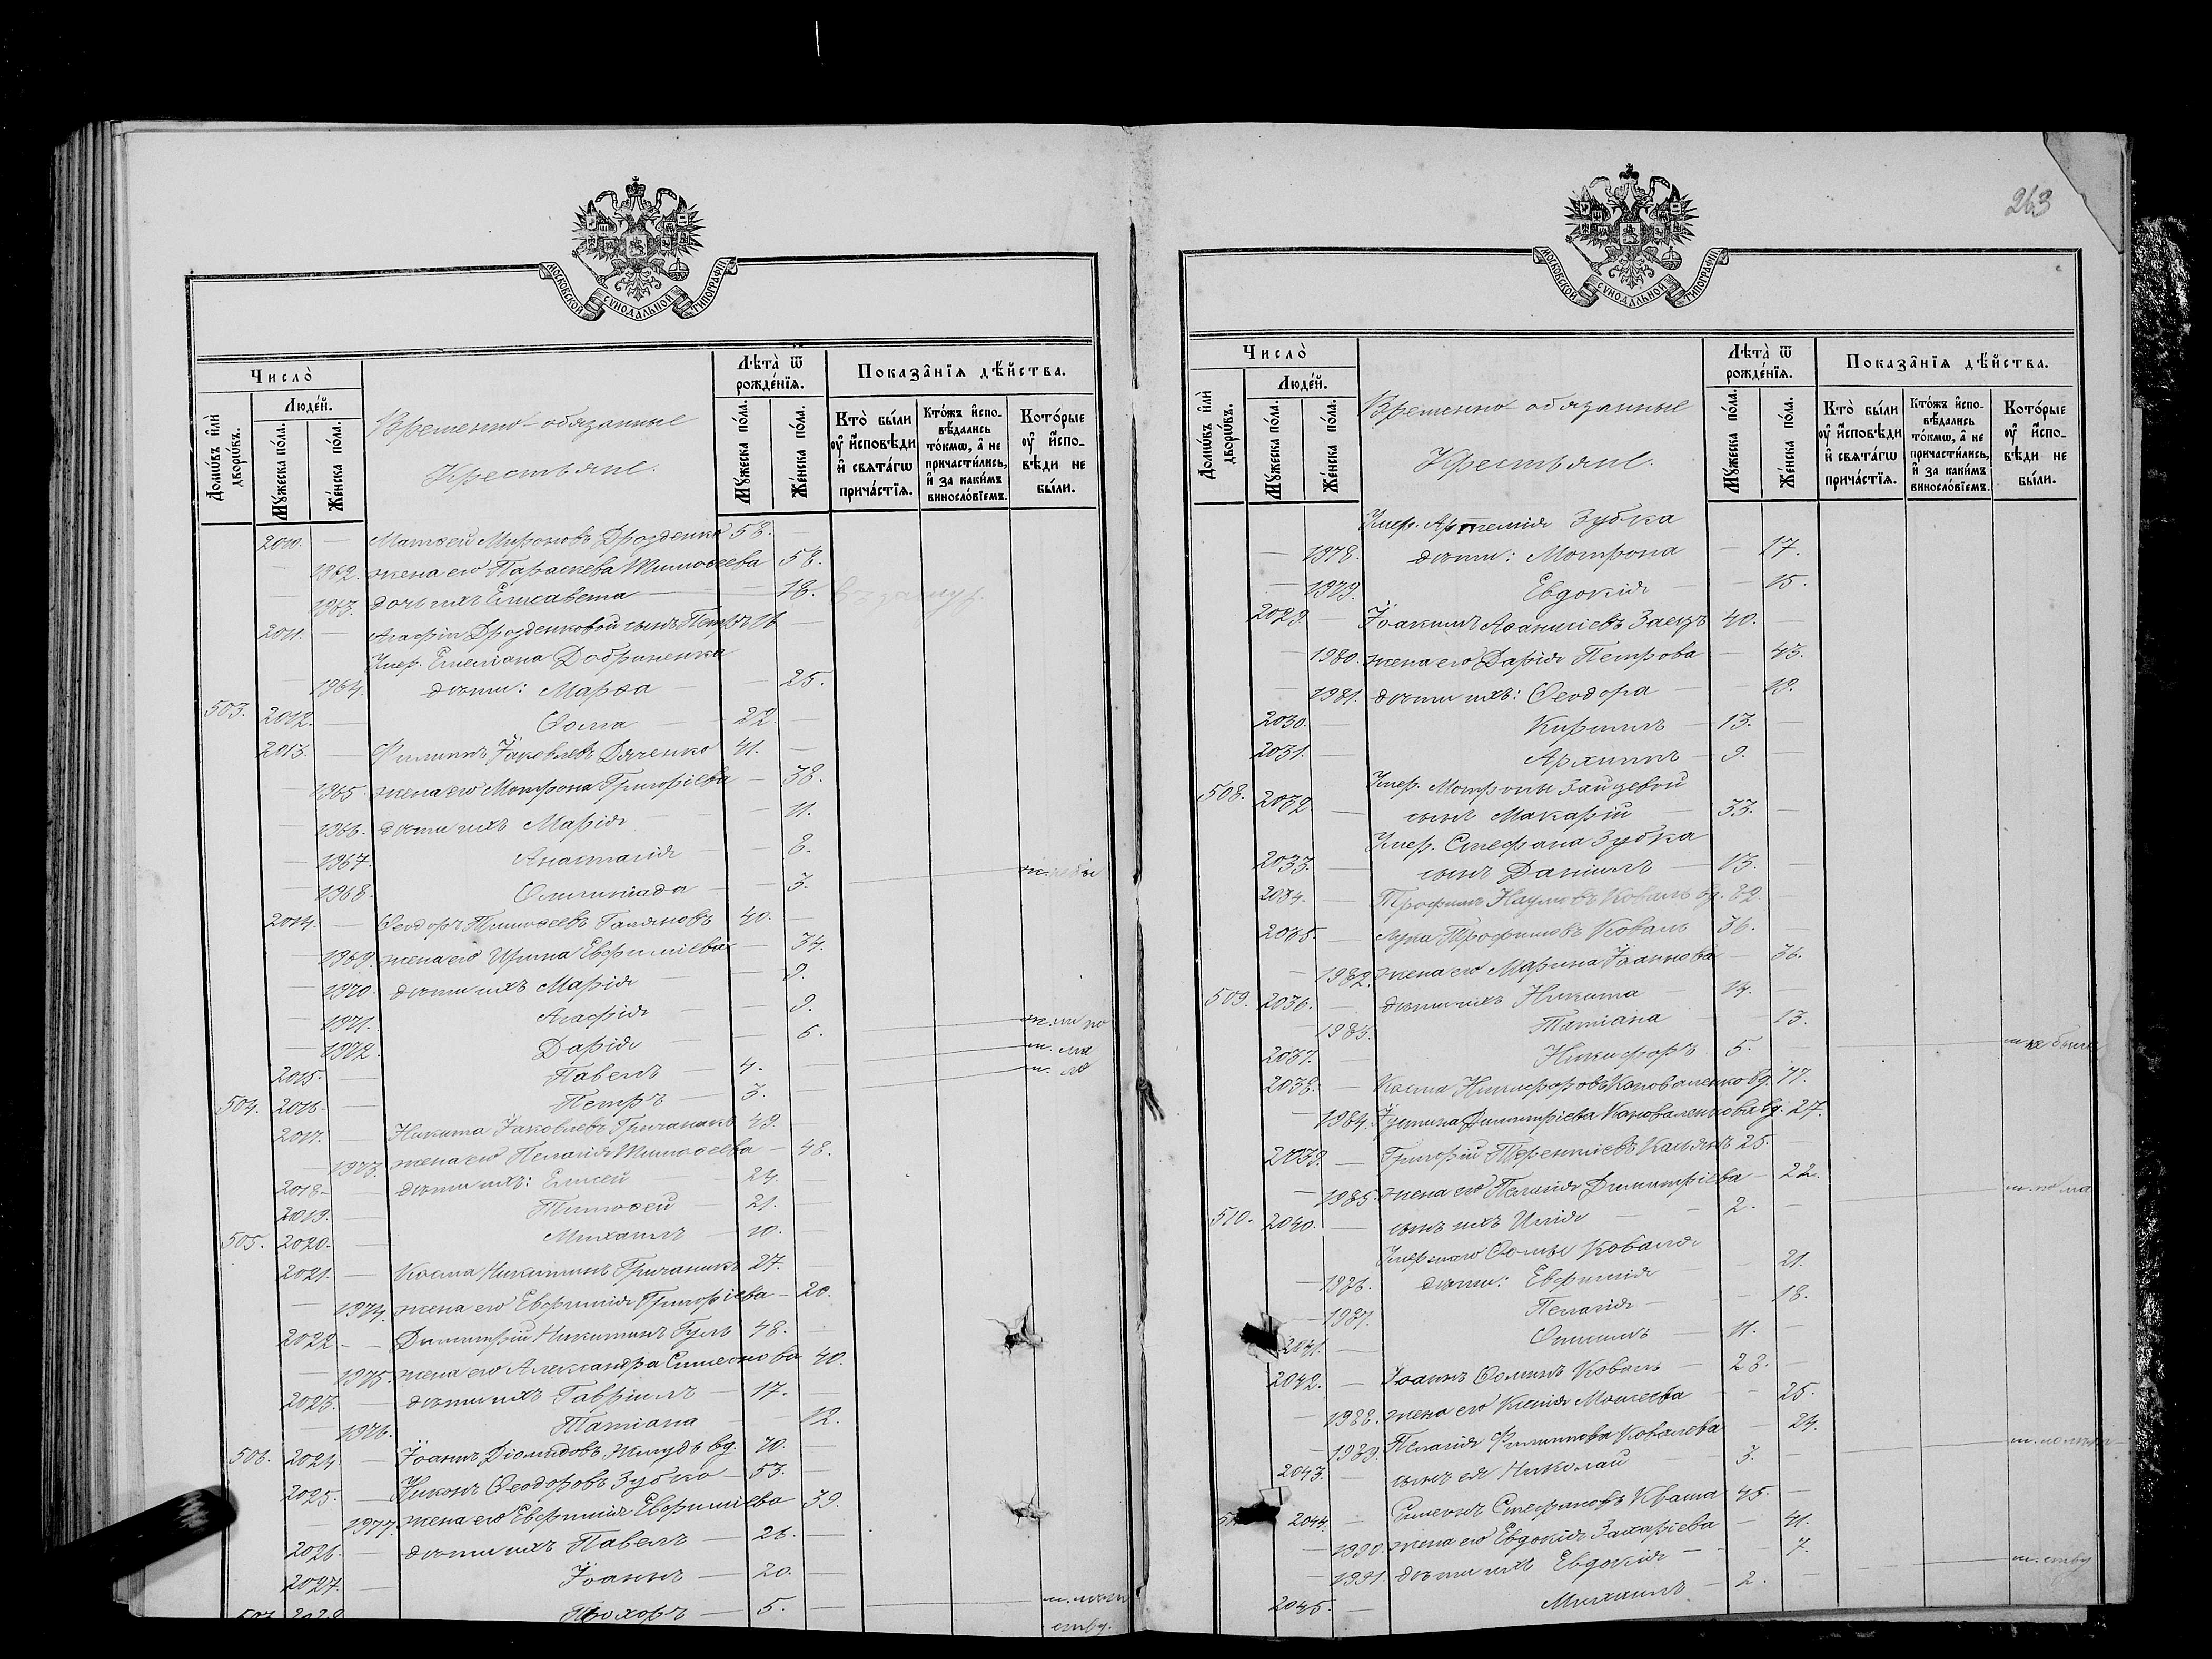 МОСКОВСКОЙ СУНОДАЛЬНОЙ ТИПОГРАФІИ
Число̀
Домѡ́въ и҆лѝ дворѡ́въ.
Люде́й.
Мꙋ́жеска по́ла.
Же́нска по́ла.
Временно-обязанные
Крестьяне.
Лѣта̀ ѿ рожде́нїѧ.
Мꙋ́жеска по́ла.
Же́нска по́ла.
Показа̑нїѧ дѣ́йства.
Кто̀ бы́ли
ᲂу҆ и҆́сповѣди
и҆ свѧта́гѡ
прича́стїѧ.
Кто́жъ и҆спо-
вѣ́дались
то́кмѡ, а҆ не
причасти́лись,
и҆ за каки́мъ
виносло́вїемъ.
Кото́рые
ᲂу҆ и҆спо-
вѣди не
бы́ли.
2010. — Матѳей Мироновъ Дрозденко 58. —
— 1962. жена его Параскева Тимоѳеева 58.
— 1963. дочь ихъ Елисавета — 18.
2011. — Агафіи Дрозденковой сынъ Петръ 16 —
Умер. Емеліана Добриненка
— 1964. дѣти: Марѳа — — 25.
503. 2012. — Ѳома — 22. —
2013. — Филиппъ Іаковлевъ Дяченко 41. —
— 1965. жена его Мотрона Григоріева — 38.
— 1966. дѣти ихъ Марія — — 11.
— 1967. Анастасія — — 8.
— 1968. Олимпіада — — 3.
2014. — Ѳеодоръ Тимоѳеевъ Галяновъ 40. —
— 1969. жена его Ирина Евфиміева — 34.
— 1970. дѣти ихъ Марія — 9.
— 1971. Агафія — 9.
— 1972. Дарія — 6.
2015. — Павелъ — 4. —
504. 2016. — Петръ — 3. —
2017. — Никита Іаковлевъ Гричаникъ 49. —
— 1973. жена его Пелагія Тимоѳеева — 48.
2018. — дѣти ихъ: Елисей — 24. —
2019. — Тимоѳей — 21. —
505. 2020. — Михаилъ — 10. —
2021. — Косма Никитинъ Гричаникъ 27. —
— 1974. жена его Евфимія Григоріева — 20.
2022. — Димитрій Никитинъ Гузь 48. —
— 1975. жена его Александра Симеонова 40.
2023. — дѣти ихъ Гавріилъ — 17. —
— 1976. Татіана — — 12.
506. 2024. — Іоаннъ Діомидовъ Жмудь вд. 70. —
2025. — Никонъ Ѳеодоровъ Зубко — 53. —
— 1977. жена его Евфимія Евфиміева 39.
2026. — дѣти ихъ Павелъ — 26. —
2027. — Іоаннъ — 20. —
507. 2028. Прохоръ — 5. —
263
МОСКОВСКОЙ СУНОДАЛЬНОЙ ТИПОГРАФІИ
Число̀
Домѡ́въ и҆лѝ дворѡ́въ.
Люде́й.
Мꙋ́жеска по́ла.
Же́нска по́ла.
Временно-обязанные
Крестьяне.
Лѣта̀ ѿ рожде́нїѧ.
Мꙋ́жеска по́ла.
Же́нска по́ла.
Показа̑нїѧ дѣ́йства.
Кто̀ бы́ли
ᲂу҆ и҆́сповѣди
и҆ свѧта́гѡ
прича́стїѧ.
Кто́жъ и҆спо-
вѣ́дались
то́кмѡ, а҆ не
причасти́лись,
и҆ за каки́мъ
виносло́вїемъ.
Кото́рые
ᲂу҆ и҆спо-
вѣди не
бы́ли.
Умер. Артемія Зубка
— 1978. дѣти: Мотрона — 17.
— 1979. Евдокія — — 15.
2029. Іоакимъ Аѳанасіевъ Заецъ 40. —
— 1980. жена его Дарія Петрова — 43.
— 1981. дѣти ихъ: Ѳеодора — — 19.
2030. Кириллъ — 13. —
2031. — Архипъ — 9. —
Умер. Мотроны Зайцевой
508. 2032 — сынъ Макарій — 33. —
Умер. Стефана Зубка
2033. — сынъ Даніилъ — 13. —
2034. — Трофимъ Наумовъ Коваль вд. 82. —
2035. — Лука Трофимовъ Коваль 36. —
— 1982. жена его Марина Іоаннова — 36.
509. 2036. — дѣти ихъ Никита 14. —
— 1983. Татіана — 13.
2037. — Никифоръ 5. — не были
2038. — Косма Никифоровъ Коноваленко вд. 77. —
— 1984. Іустина Димитріева Коноваленкова вд. 27.
2039. — Григорій Терентіевъ Касьянъ 25. —
— 1985. жена его Пелагія Димитріева — 22.
510. 2040. — сынъ ихъ Илія — 2. —
Умершаго Ѳомы Коваля
— 1986. дѣти: Евфимія — — 21.
— 1987. Пелагія — — 18.
2041. — Онисимъ — 11. —
2042. — Іоаннъ Ѳоминъ Коваль — 28. —
— 1988. жена его Ксенія Моисеева — 25.
— 1989. Пелагія Филиппова Ковалева — 24.
2043. — сынъ ея Николай — 3. —
2044. — Симеонъ Стефановъ Кваша 45. —
— 1990. жена его Евдокія Захаріева — 41.
— 1991. дѣти ихъ Евдокія — — 7.
2045. — Михаилъ — 2. —